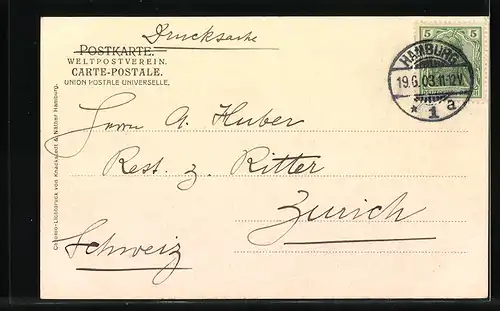 Drucksache
POSTKARTE.
WELTPOSTVEREIN.
CARTE-POSTALE.
UNION POSTALE UNIVERSELLE.
5 5
HAMBURG
19.6.03.11-12V
* 1 a
Herrn A. Huber
Rest. z. Ritter
Zürich
Schweiz
von Knackstedt & Näther Hamburg.